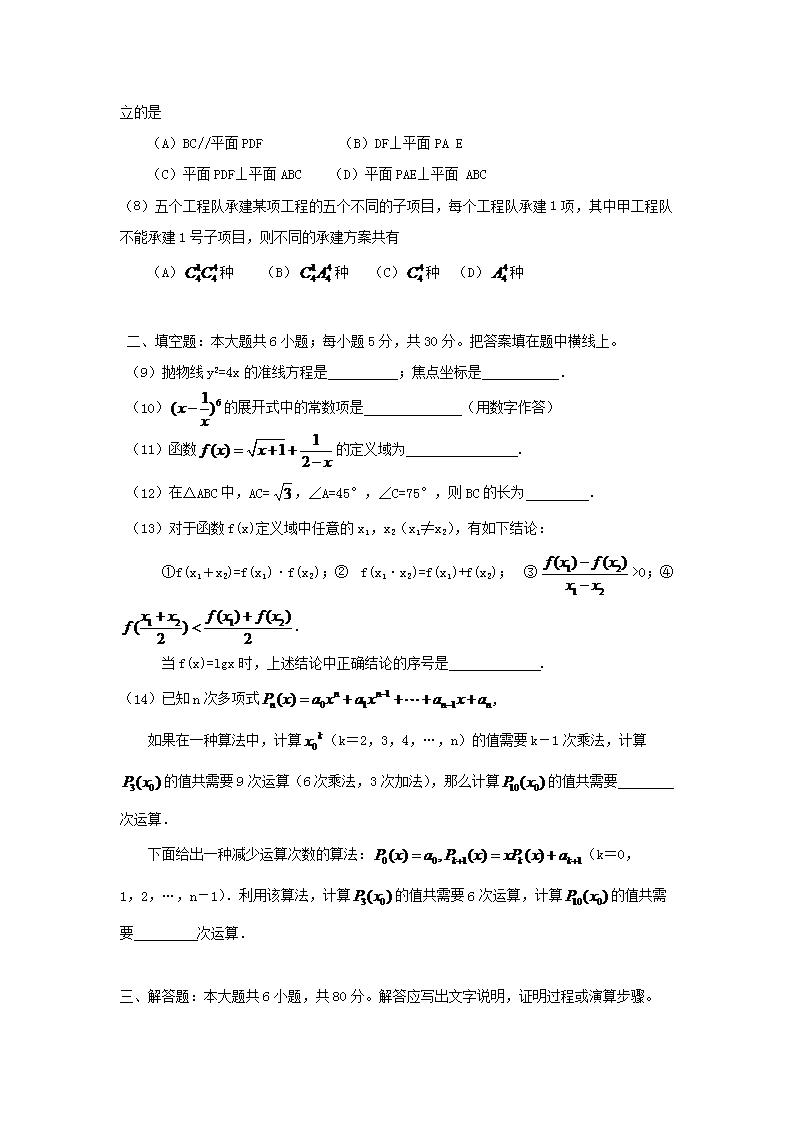 立的是
(A)BC//平面PDF (B)DF⊥平面PA E
(C)平面PDF⊥平面ABC (D)平面PAE⊥平面 ABC
(8)五个工程队承建某项工程的五个不同的子项目,每个工程队承建1项,其中甲工程队
不能承建1号子项目,则不同的承建方案共有
(A)$C_4^1C_4^4$种 (B)$C_4^1A_4^4$种 (C)$C_4^4$种 (D)$A_4^4$种
二、填空题:本大题共6小题;每小题5分,共30分。把答案填在题中横线上。
(9)抛物线y²=4x的准线方程是__________;焦点坐标是___________.
(10)$(x-\frac{1}{x})^6$的展开式中的常数项是______________(用数字作答)
(11)函数$f(x)=\sqrt{x+1}+\frac{1}{2-x}$的定义域为________________.
(12)在△ABC中,AC=$\sqrt{3}$,∠A=45°,∠C=75°,则BC的长为_________.
(13)对于函数f(x)定义域中任意的x₁,x₂(x₁≠x₂),有如下结论:
①f(x₁+x₂)=f(x₁)·f(x₂);② f(x₁·x₂)=f(x₁)+f(x₂); ③$\frac{f(x_1)-f(x_2)}{x_1-x_2}$>0;④
$f(\frac{x_1+x_2}{2})<\frac{f(x_1)+f(x_2)}{2}$.
当f(x)=lgx时,上述结论中正确结论的序号是_____________.
(14)已知n次多项式$P_n(x)=a_0x^n+a_1x^{n-1}+\cdots+a_{n-1}x+a_n$,
如果在一种算法中,计算$x_0^k$(k=2,3,4,…,n)的值需要k-1次乘法,计算
$P_3(x_0)$的值共需要9次运算(6次乘法,3次加法),那么计算$P_{10}(x_0)$的值共需要________
次运算.
下面给出一种减少运算次数的算法:$P_0(x)=a_0,P_{k+1}(x)=xP_k(x)+a_{k+1}$(k=0,
1,2,…,n-1).利用该算法,计算$P_3(x_0)$的值共需要6次运算,计算$P_{10}(x_0)$的值共需
要_________次运算.
三、解答题:本大题共6小题,共80分。解答应写出文字说明,证明过程或演算步骤。